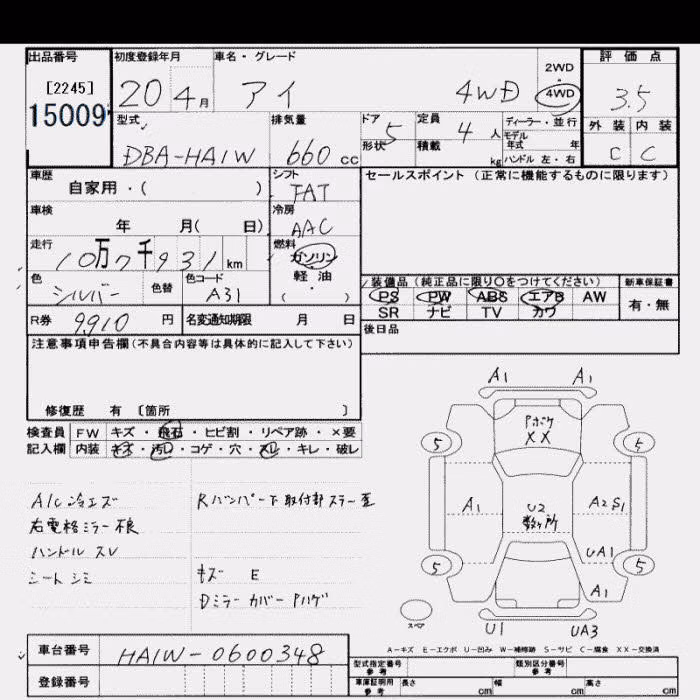 出品番号
[2245]
15009
初度登録年月
20 4月
車名・グレード
アイ 4WD
2WD
・
4WD
評価点
3.5
型式
DBA-HA1W
排気量
660 cc
ドア 5
形状
定員 4 人
積載 kg
ディーラー・並行
モデル
年式 年
ハンドル 左・右
外装 内装
C C
車歴
自家用・( )
シフト
FAT
セールスポイント (正常に機能するものに限ります)
車検
年 月( 日)
冷房
AAC
走行
10万7千931 km
燃料
ガソリン
軽・油
( ・ )
色
シルバー
色替
色コード
A31
装備品 (純正品に限り○をつけてください)
PS PW ABS エアB AW
SR ナビ TV カワ
新車保証書
有・無
R券 9910 円
名変通知期限 月 日
後日品
注意事項申告欄(不具合内容等は具体的に記入して下さい)
修復歴 有 〔箇所 〕
検査員 FW キズ・飛石・ヒビ割・リペア跡・×要
記入欄 内装 キズ・汚れ・コゲ・穴・スレ・キレ・破レ
A/C冷エズ
右電格ミラー不良
ハンドル スレ
シート シミ
Rバンパー下取付部ステー歪
キズ E
Dミラー カバー Pハゲ
A1 A1
Pボケ
XX
5 5
A1
U2
数ヶ所
A2S1
UA1
5 5
A1
スペア
U1 UA3
A-キズ E-エクボ U-凹み W-補修跡 S-サビ C-腐食 XX-交換済
車台番号
HA1W-0600348
登録番号
型式指定番号
参考
類別区分番号
参考
車庫証明用
参考
長さ cm
幅 cm
高さ cm